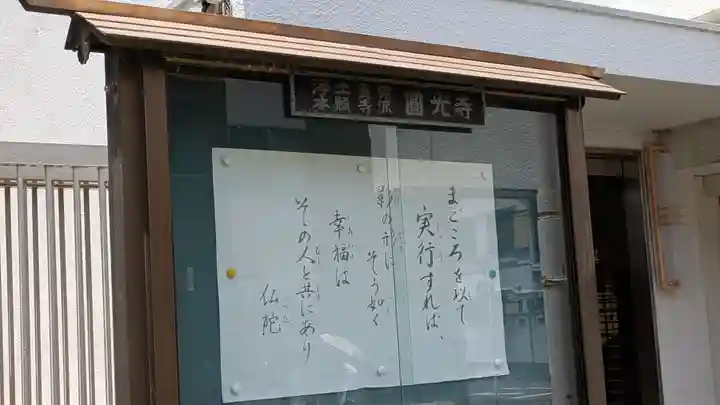 浄土真宗
本願寺
圓光寺
まごころを以て
実行すれば、
影の形に
そう如く
幸福は
その人と共にあり
仏陀